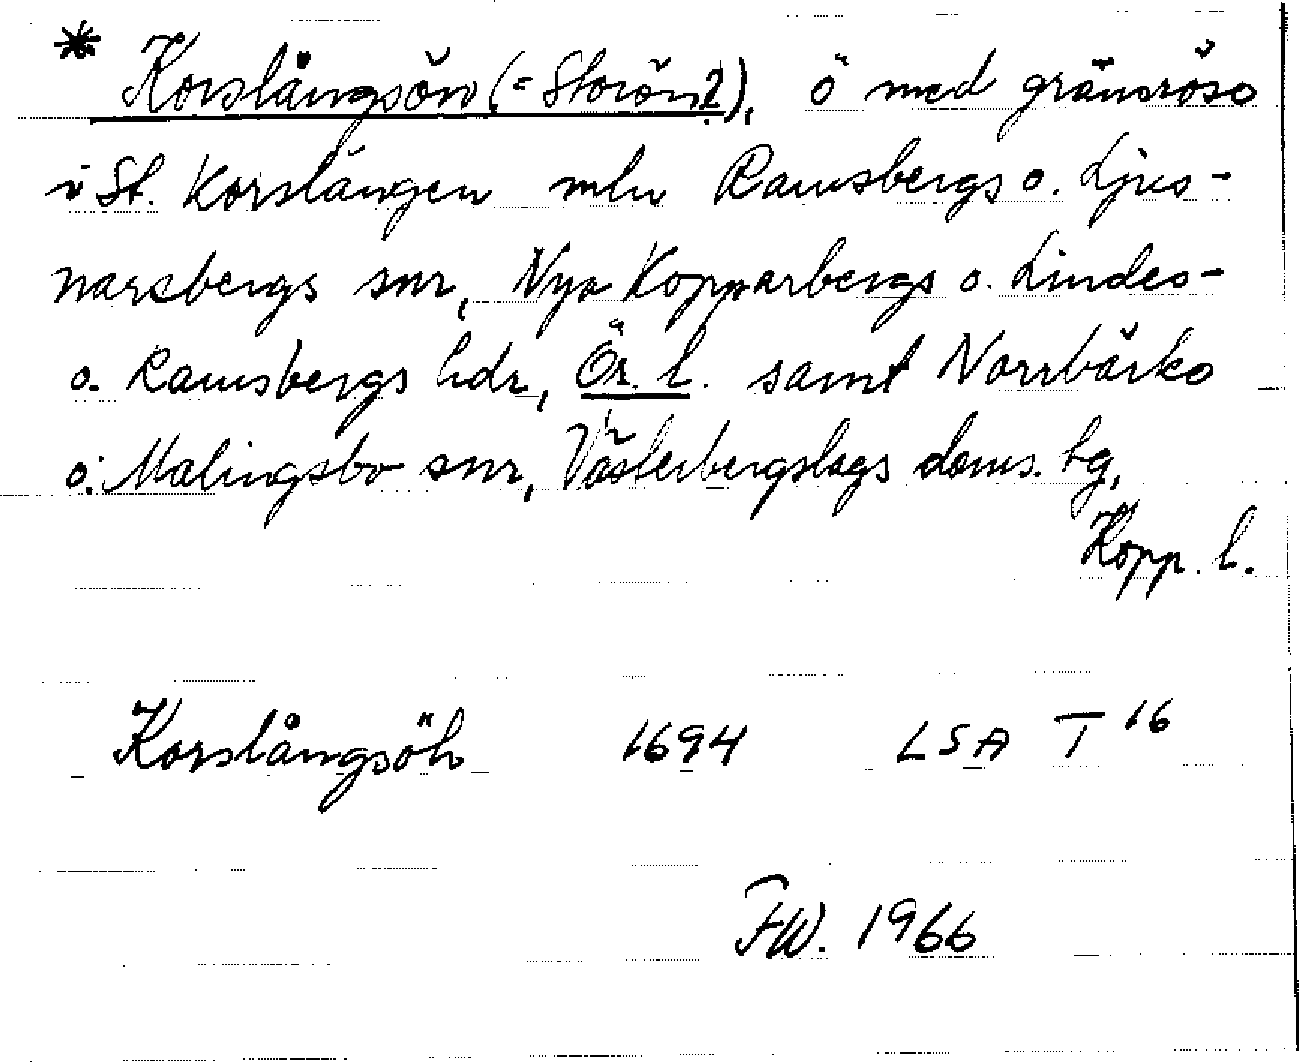 * Korslångsön (= Storön?), ö med gränsröse
i St. Korslången mln Ramsbergs o. Ljus-
narsbergs snr, Nya Kopparbergs o. Lindes-
o. Ramsbergs hdr, Ör. l. samt Norrbärke
o. Malingsbo snr, Västerbergslags doms. hg,
Kopp. l.
Korslångsöh 1694 LSA T 16
FW. 1966